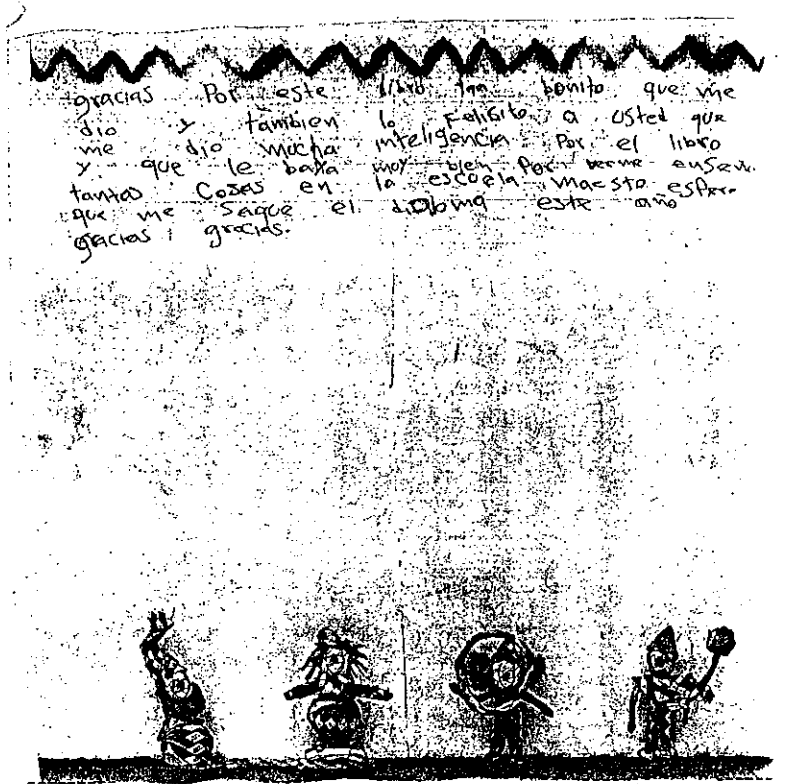 gracias Por este libro tan bonito que me
dio y tambien lo Felisito a usted que
me dio mucha inteligencia Por el libro
y que le baya moy bien Por berme enseñ.
tantas Cosas en la escoela maesto espero
que me saque el diobma este año
gracias gracias.